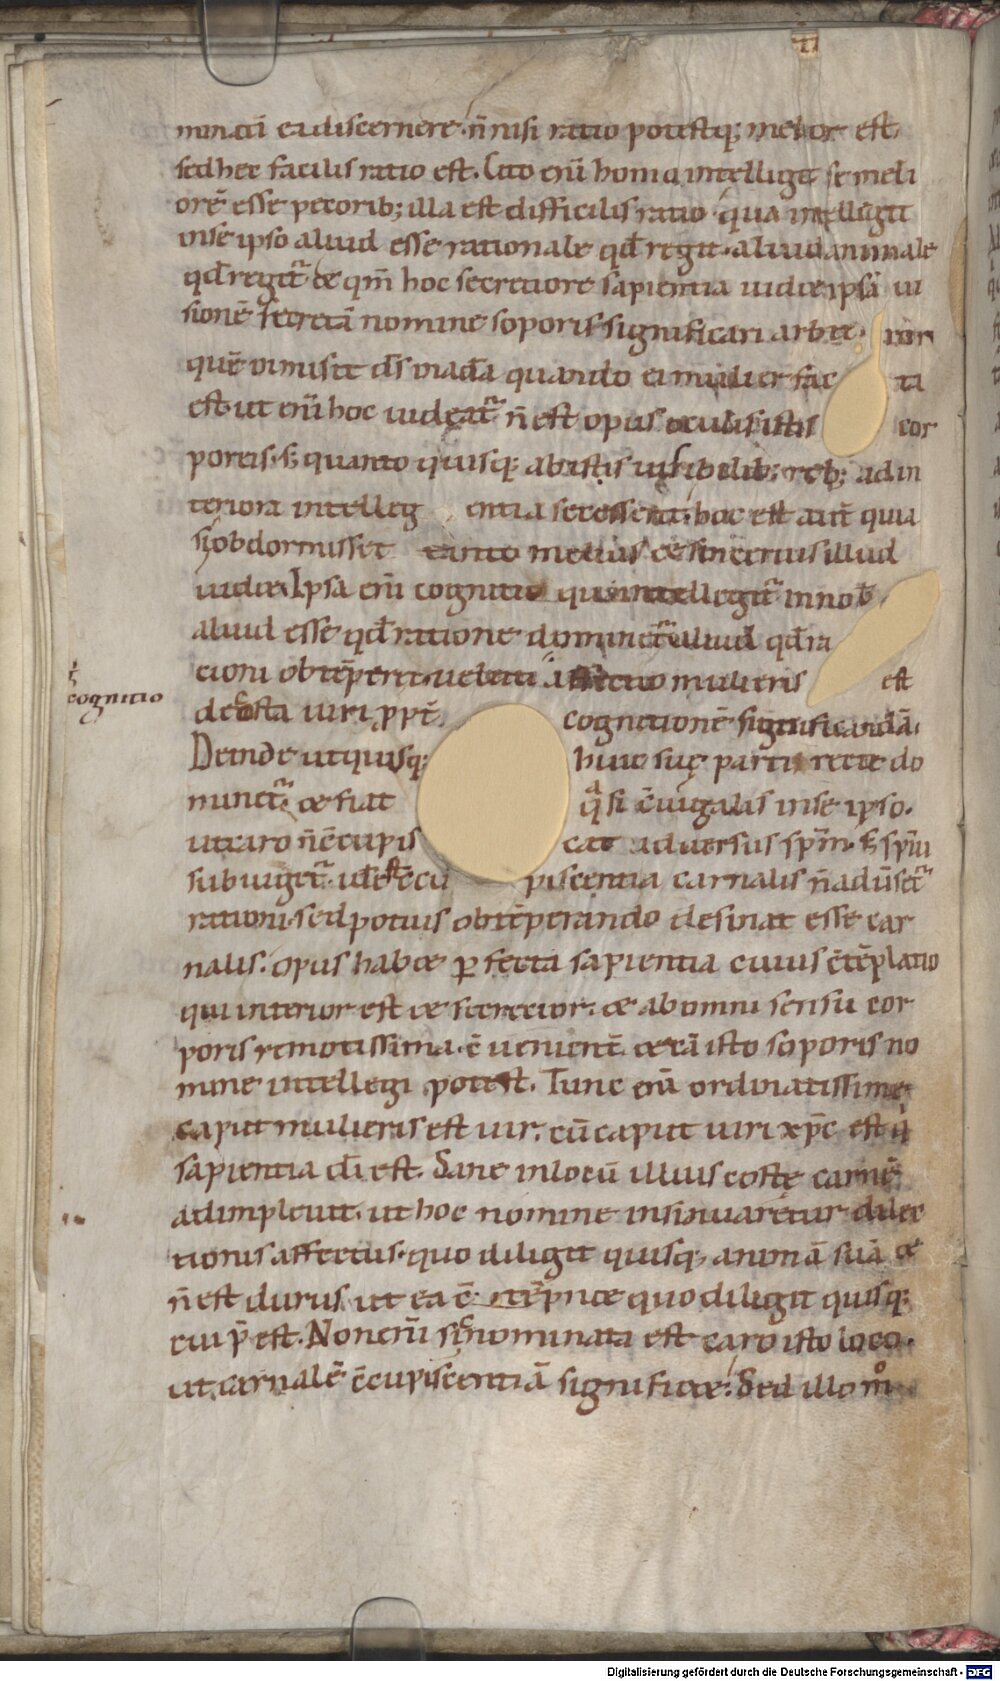 nunctū ea discernere· n̄ nisi ratio potestq; melior est,
sed hec facilis ratio est. Cito enī homo intelligit se meli
orē esse pecorib; illa est difficilis ratio qua intelligit
in se ipso aliud esse rationale qđ regit· aliud animale
qđ regit᷑ & qm̄ hoc secretiore sapientia uid& ipsā ui
sionē secretā nomine soporis significari arbit ror
quē inmisit d̄s in adā quando ei mulier fac ta
est· ut enī hoc uideat᷑ n̄ est opus oculis istis cor
poreis· s; quanto quisq; ab istis uisibilib; reb; ad in
teriora intelleg entia secesserit· hoc est autē quia
si obdormisset tanto melius & sinceriu s illud
uid&. Ipsa enī cognitio qua intellegit᷑ in nob̄
aliud esse qđ ratione dominet᷑ aliud qđ ra
cioni obtēperet· ueluti effectio mulieris est
de costa uiri ppt̄ cognitionē significandā·
Deinde ut quisq; huic suę parti recte do
minet᷑ & fiat q̄si ē̄iugalis in se ipso·
ut caro n̄ ēcupis cat aduersus spm̄· s; spiu
subiuget᷑· id est ēcu piscentia carnalis n̄ aduset᷑
rationi· sed potius obtēperando desinat esse car
nalis. Opus hab& pfecta sapientia cuius ētēplatio
qui interior est & secretior· & ab omni sensu cor
poris remotissima· ēuenient̄ & tā isto soporis no
mine intellegi potest. Tunc enī ordinatissime
caput mulieris est uir, cū caput uiri xp̄c est q̄
sapientia d̄i est. Sane in locū illius costę carnē
adimpleuit· ut hoc nomine insinuaretur dilec
tionis affectus· quo diligit quisq; animā suā &
n̄ est durus ut ea ētēpn& quo diligit quisq;
cui p̄ est. Non enī sic nominata est caro isto loco·
ut carnalē ēcupiscentiā signific&: Sed illo mº
cognitio
Digitalisierung gefördert durch die Deutsche Forschungsgemeinschaft - DFG